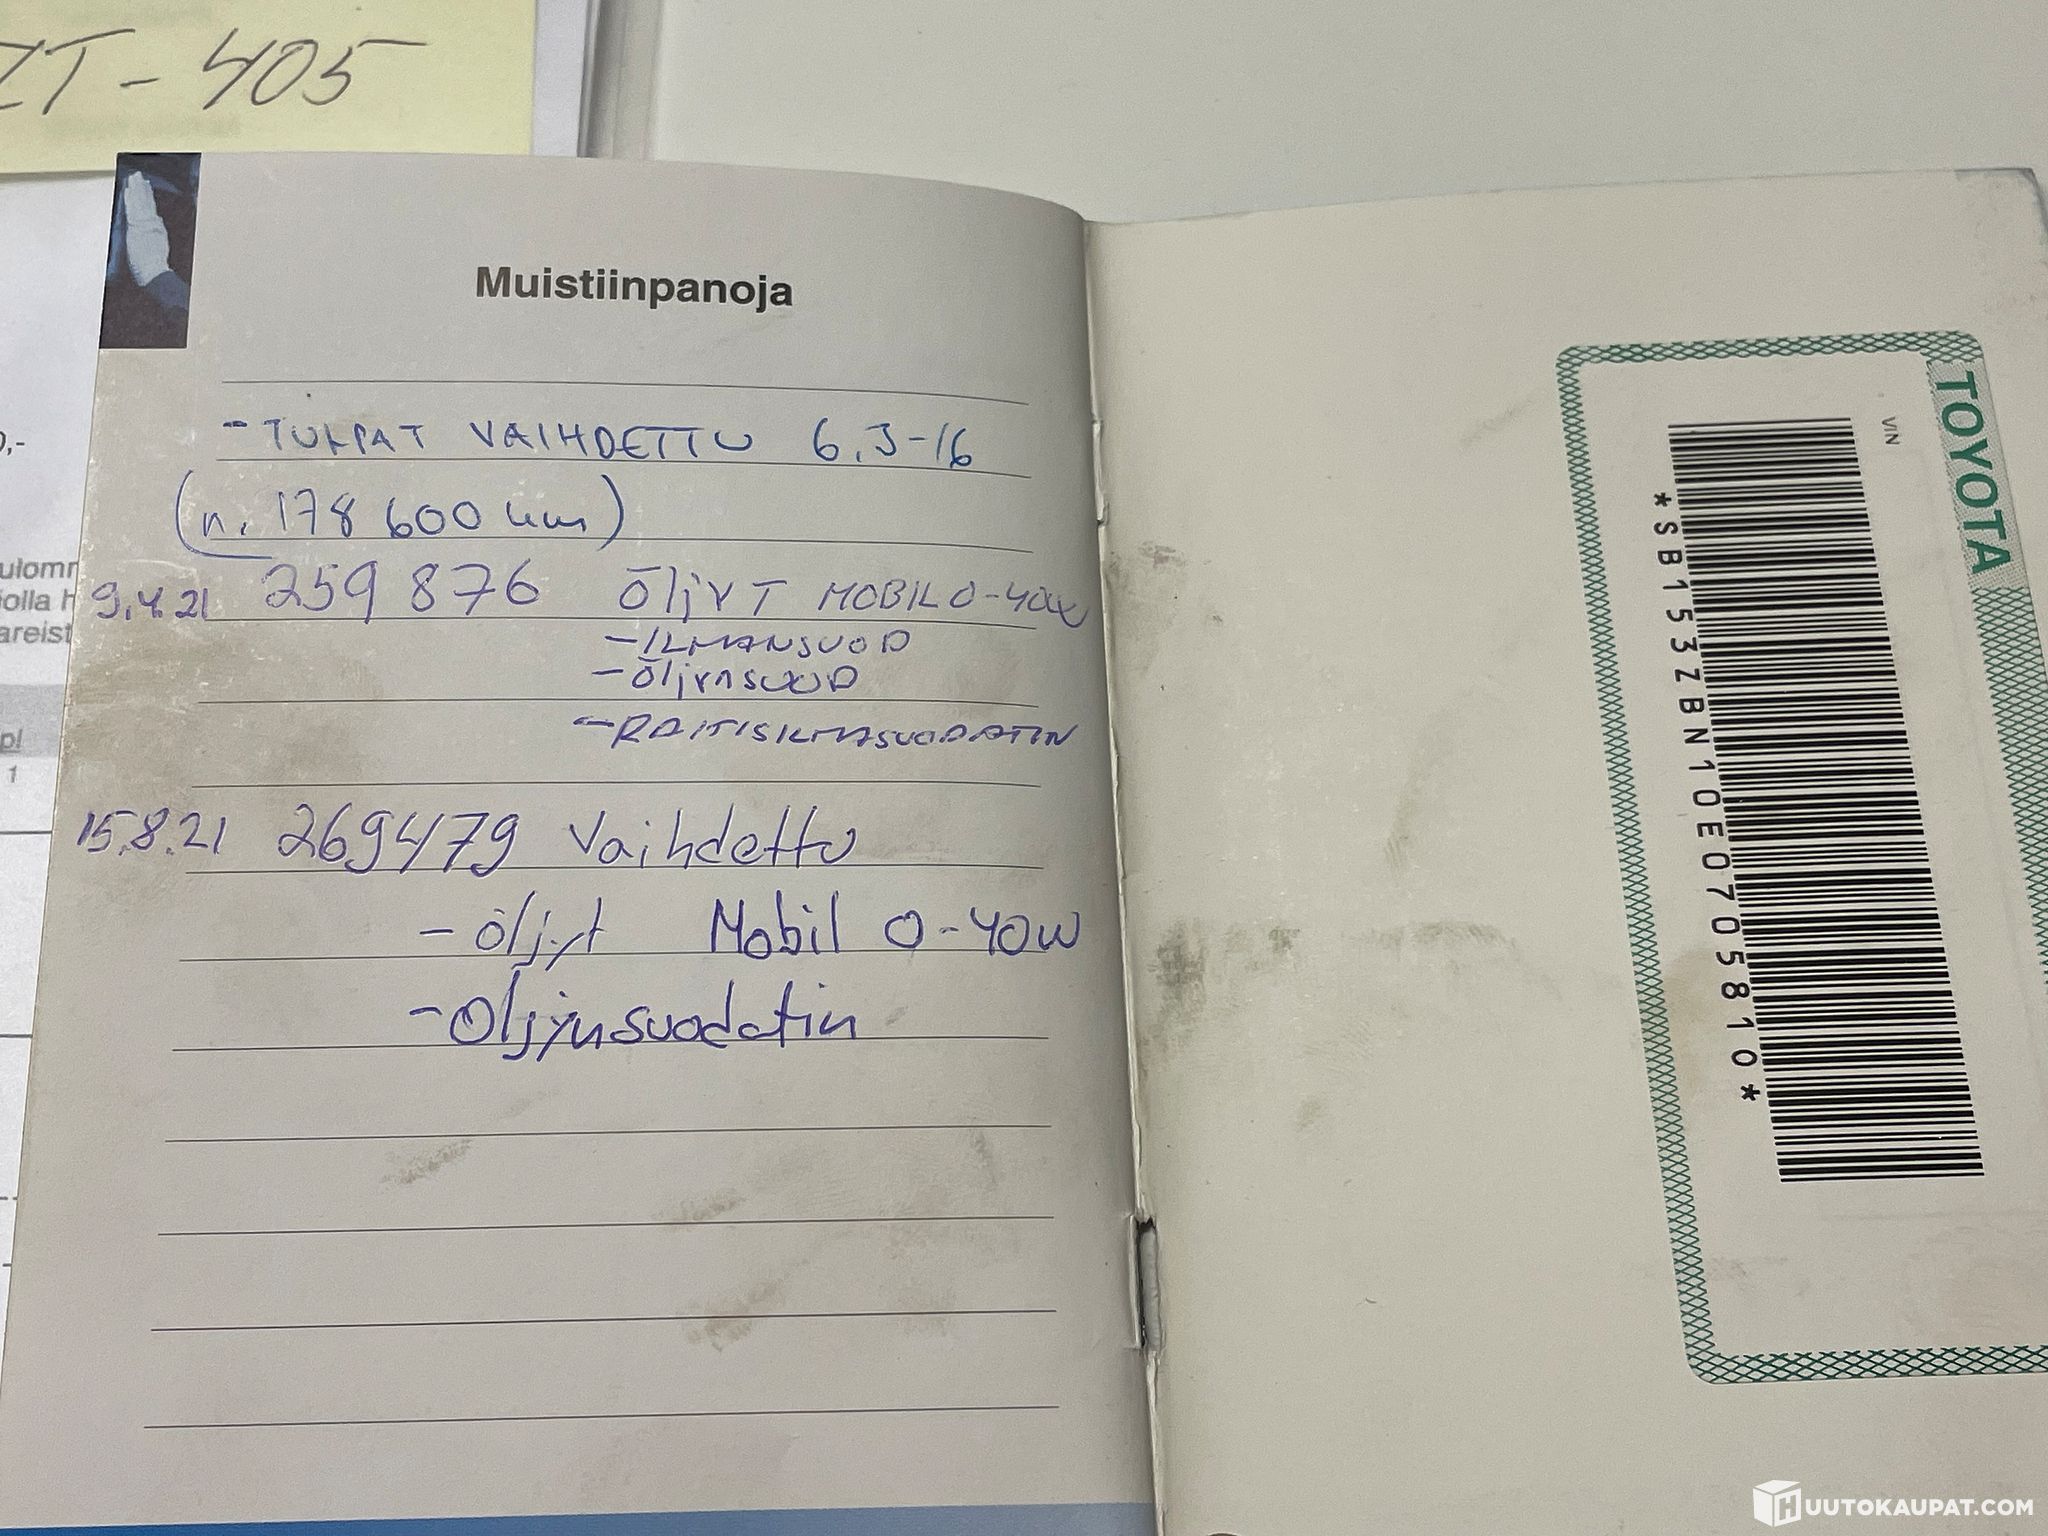 ZT-405
Muistiinpanoja
- TULPAT VAIHDETTU 6.5-16
(n. 178 600 km)
9.4.21 259 876 ÖljYT MOBIL 0-40W
- ILMANSUOD
- ÖljYNSUOD
- RAITISILMASUODATIN
15.8.21 269479 Vaihdettu
- öljyt Mobil 0-40W
- Öljynsuodatin
0,-
pl
1
TOYOTA
VIN
*SB153ZBN10E0705810*
HUUTOKAUPAT.COM